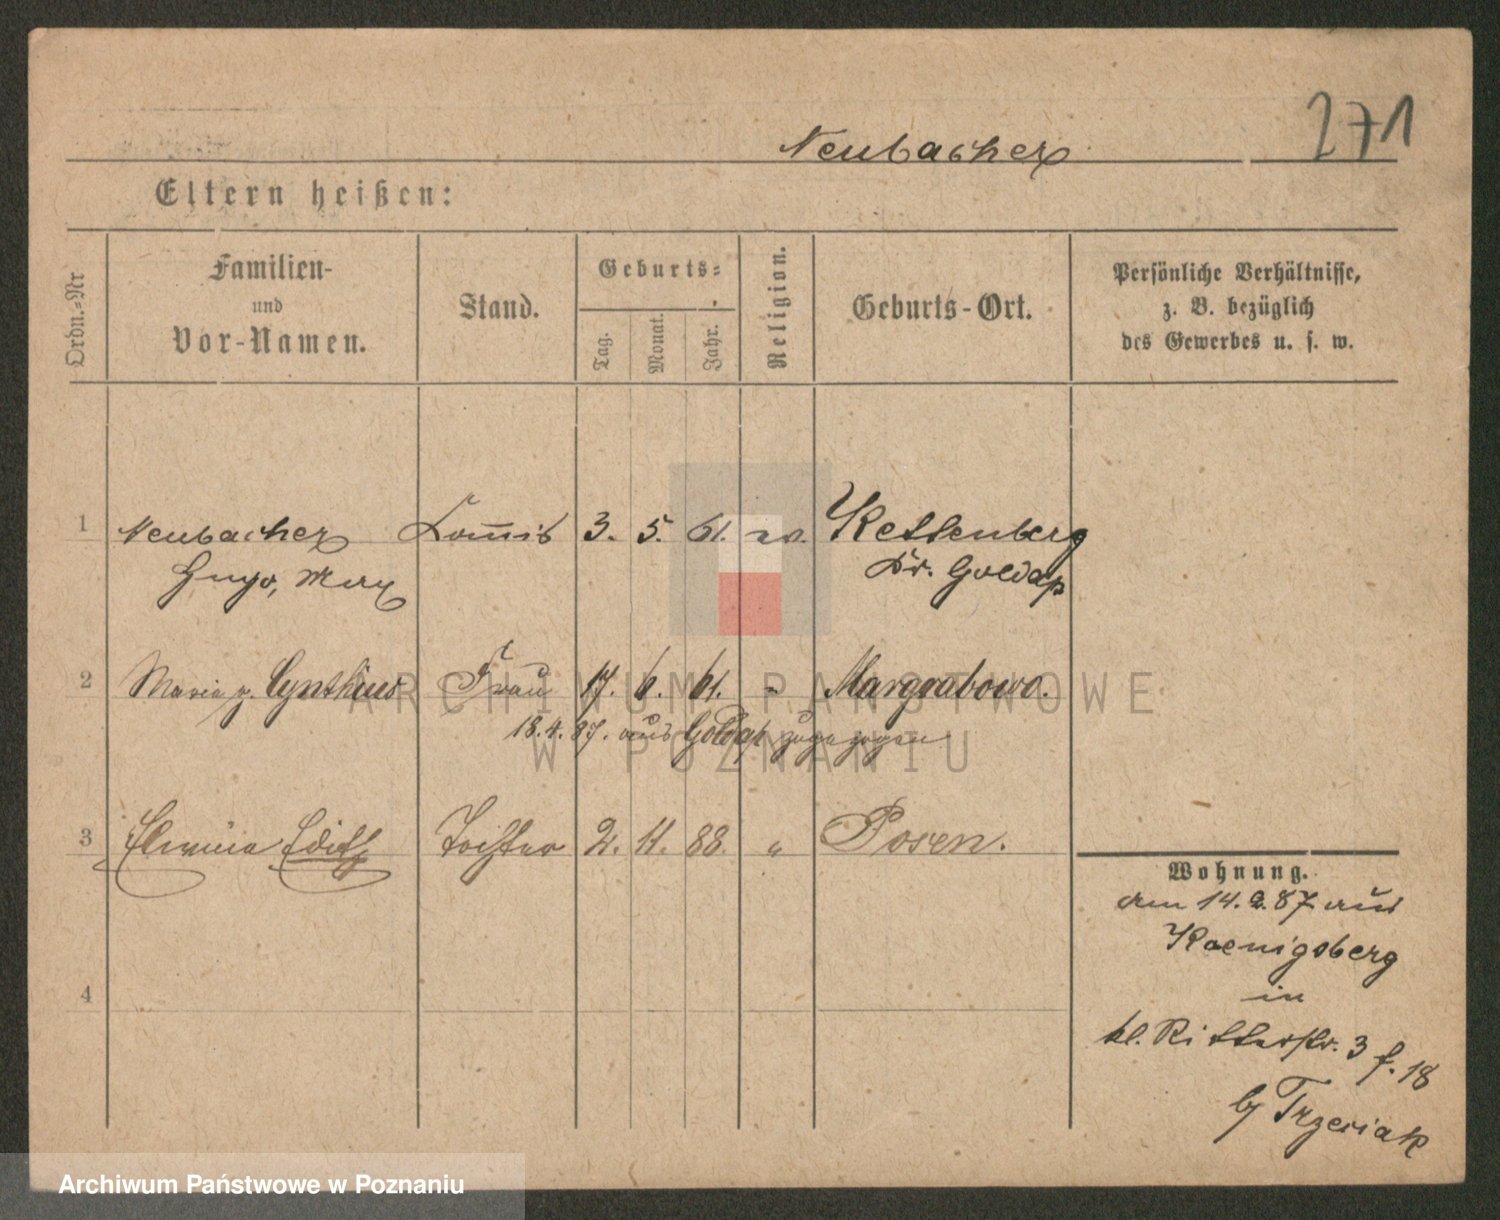 Neubacher
271
Eltern heißen:
Ordn.-Nr
Familien-
und
Vor-Namen.
Stand.
Geburts-
Tag.
Monat.
Jahr.
Religion.
Geburts-Ort.
Persönliche Verhältnisse,
z. B. bezüglich
des Gewerbes u. s. w.
1 Neubacher Commis 3. 5. 61. ev. Kettenberg
Hugo, Max Kr. Goldap
2 Maria g. Cynthius Frau 17. 6. 61. " Margrabowo.
18.4.87. aus Goldap zugezogen
3 Edith Tochter 2. 11. 88. " Posen.
4
Wohnung.
am 14.2.87 aus
Koenigsberg
in
kl. Ritterstr. 3 f. 18
by Trzeciak
ARCHIWUM PAŃSTWOWE
W POZNANIU
Archiwum Państwowe w Poznaniu